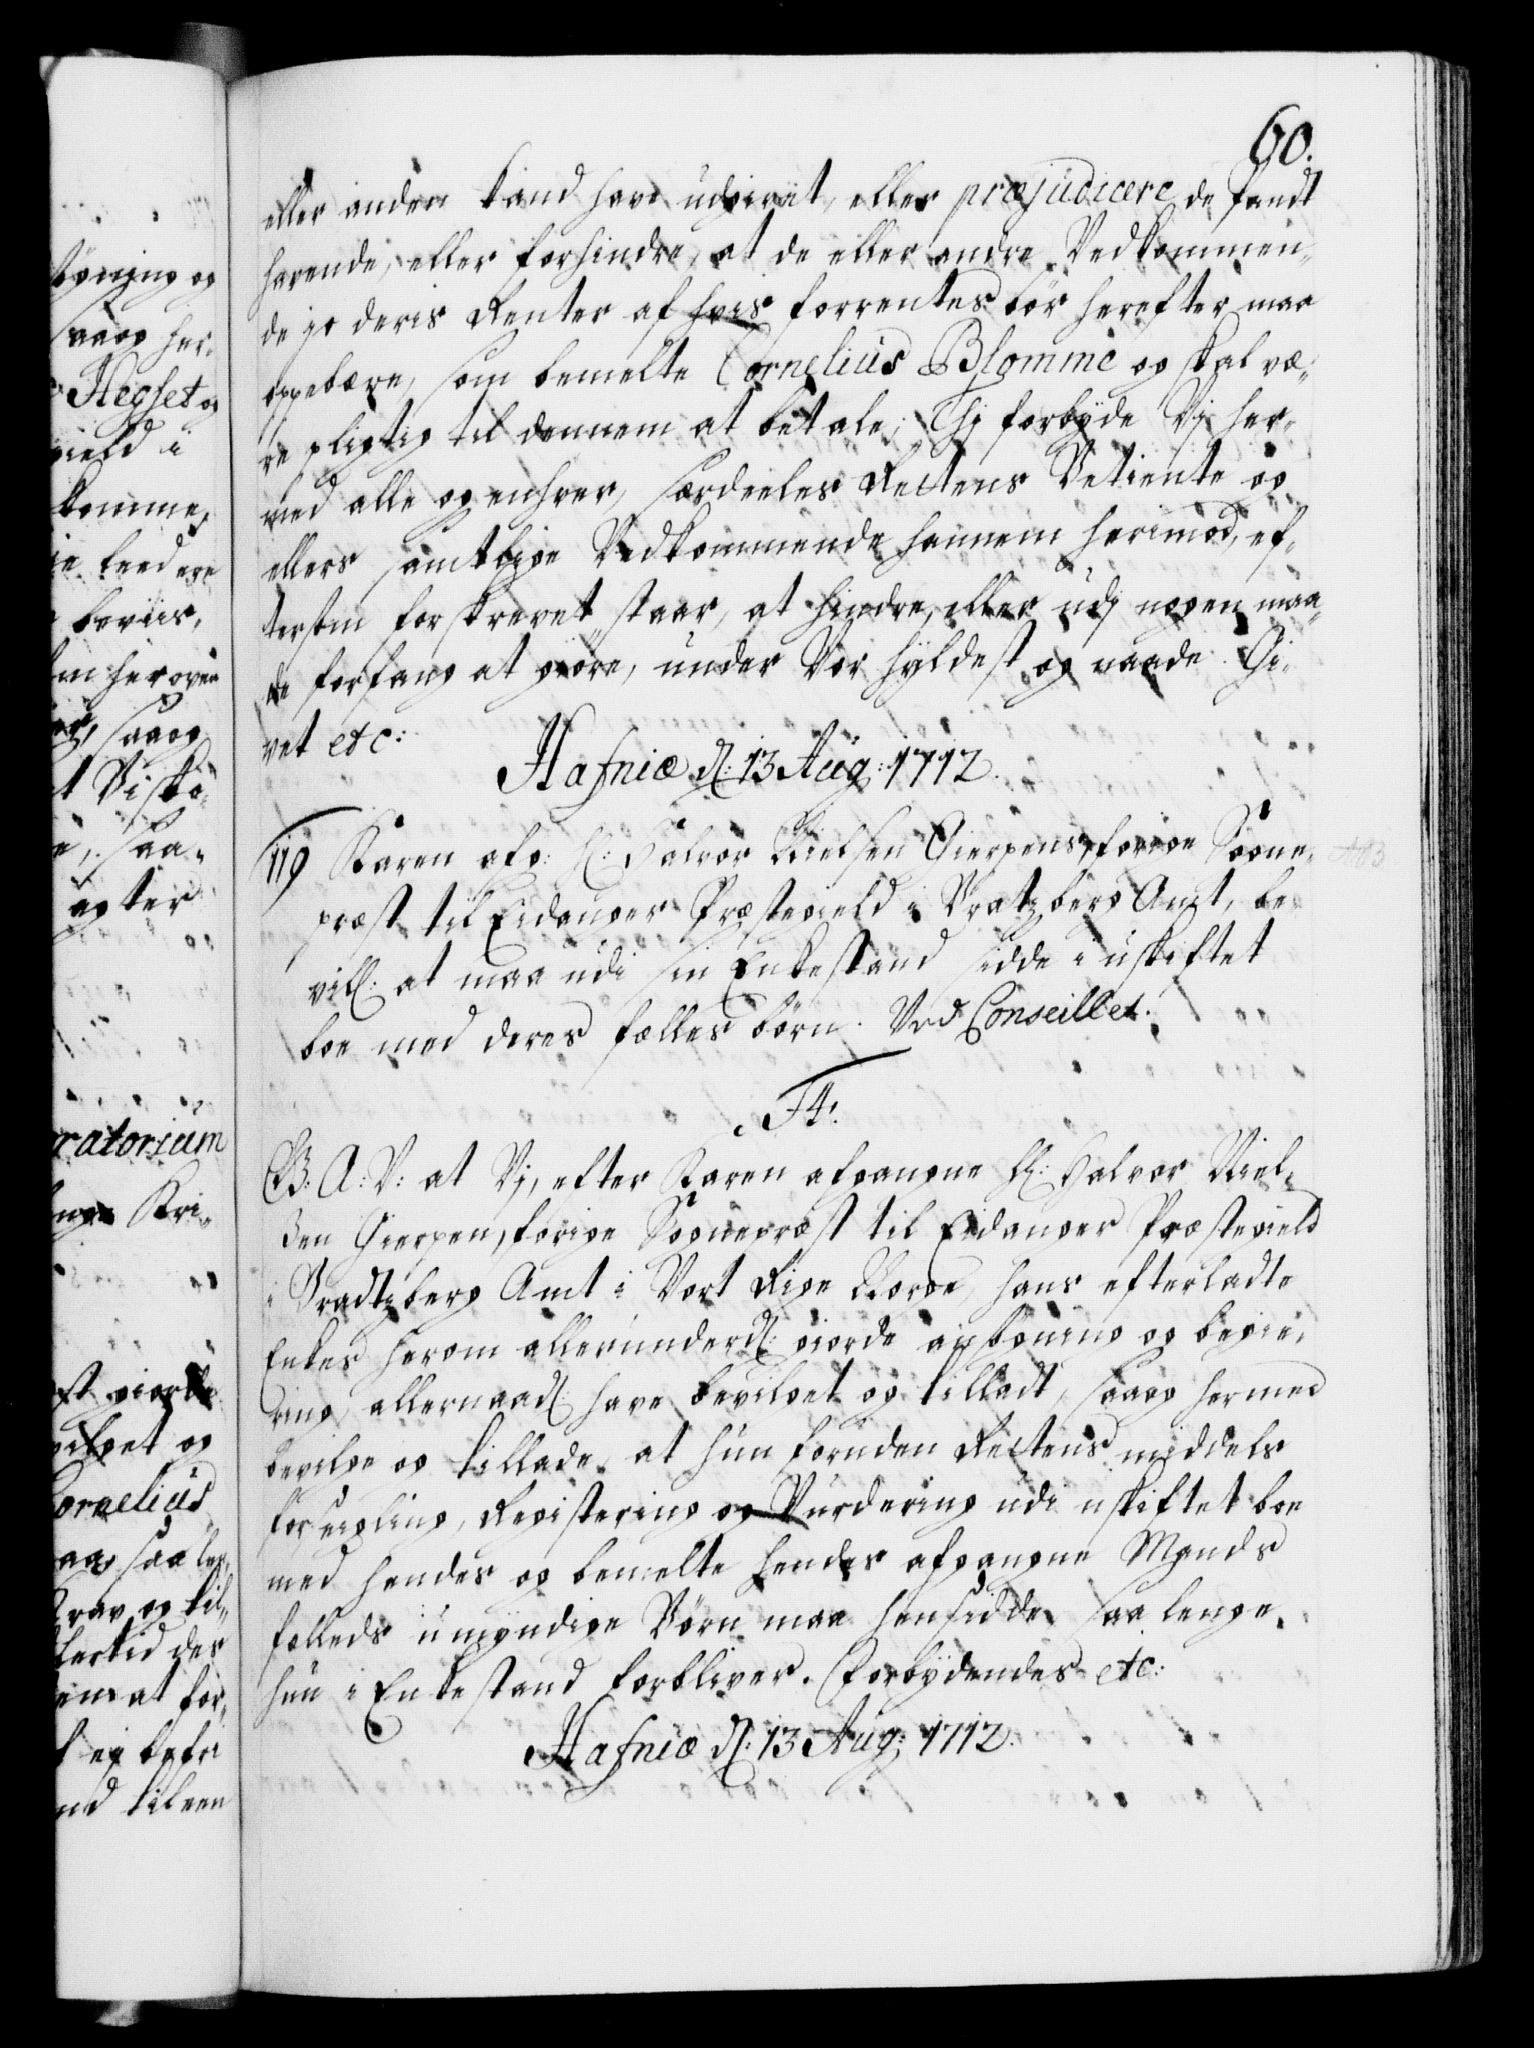 60.
eller anden kand have udgivet, eller præjudicere de pandt
havende, eller forhindre, at de eller andre Vedkommen-
de jo deris Renter af hvis forrentes bör herefter maa
oppebære, som bemelte Cornelius Blomme og skal væ-
re pligtig til dennem at betale; Thj forbyde Vj her-
med alle og enhver, særdeeles Rettens Betiente og
ellers samtlige Vedkommende hannem herimod, ef-
tersom forskrevet staar, at hindre, eller udj nogen maa-
de forfang at giöre, under Vor hyldest og naade. Gi-
vet etc:
Hafniæ d: 13 Aug: 1712.
119 Karen afg: H: Halvor Nielsen Gierpens, forige Sogne-
præst til Eidanger Præstegield i Bratzberg Amt, be-
vill: at maa udi sin Enkestand sidde i uskiftet
boe med deres fælles börn. Ved Conseillet.
F4.
G. A: V: at Vj, efter Karen afgangne H: Halvor Niel-
sen Gierpen, forige Sognepræst til Eidanger Præstegield
i Bradtzberg Amt i Vort Rige Norge, hans efterladte
Enkes herom allerunderd: giorde ansögning og begie-
ring, allernaad: have bevilget og tilladt, saaog hermed
bevilge og tillade, at hun foruden Rettens middels
forseigling, Registering og Vurdering udi uskiftet boe
med hendes og bemelte hendes afgangne Mands
fælleds umyndige Börn maa hensidde saa lenge,
hun i Enkestand forbliver. Forbydendes etc:
Hafniæ d: 13 Aug: 1712.